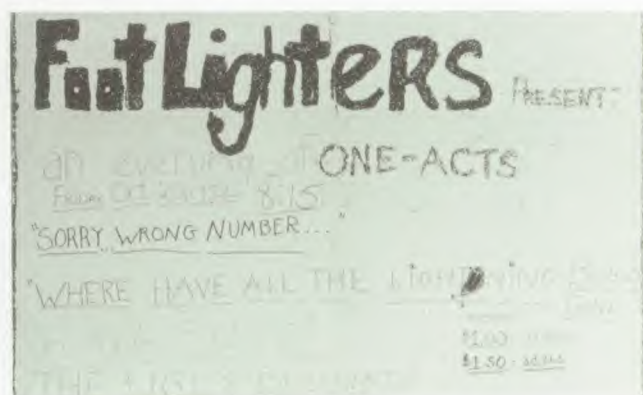 FootLighters PRESENT:
an evening of ONE-ACTS
8:15
"SORRY, WRONG NUMBER..."
"WHERE HAVE ALL THE LIGHTNING Bugs
Gone
$1.00
$1.50